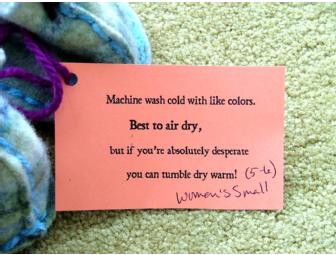 Machine wash cold with like colors.
Best to air dry,
but if you're absolutely desperate
you can tumble dry warm! (5-6)
women's Small